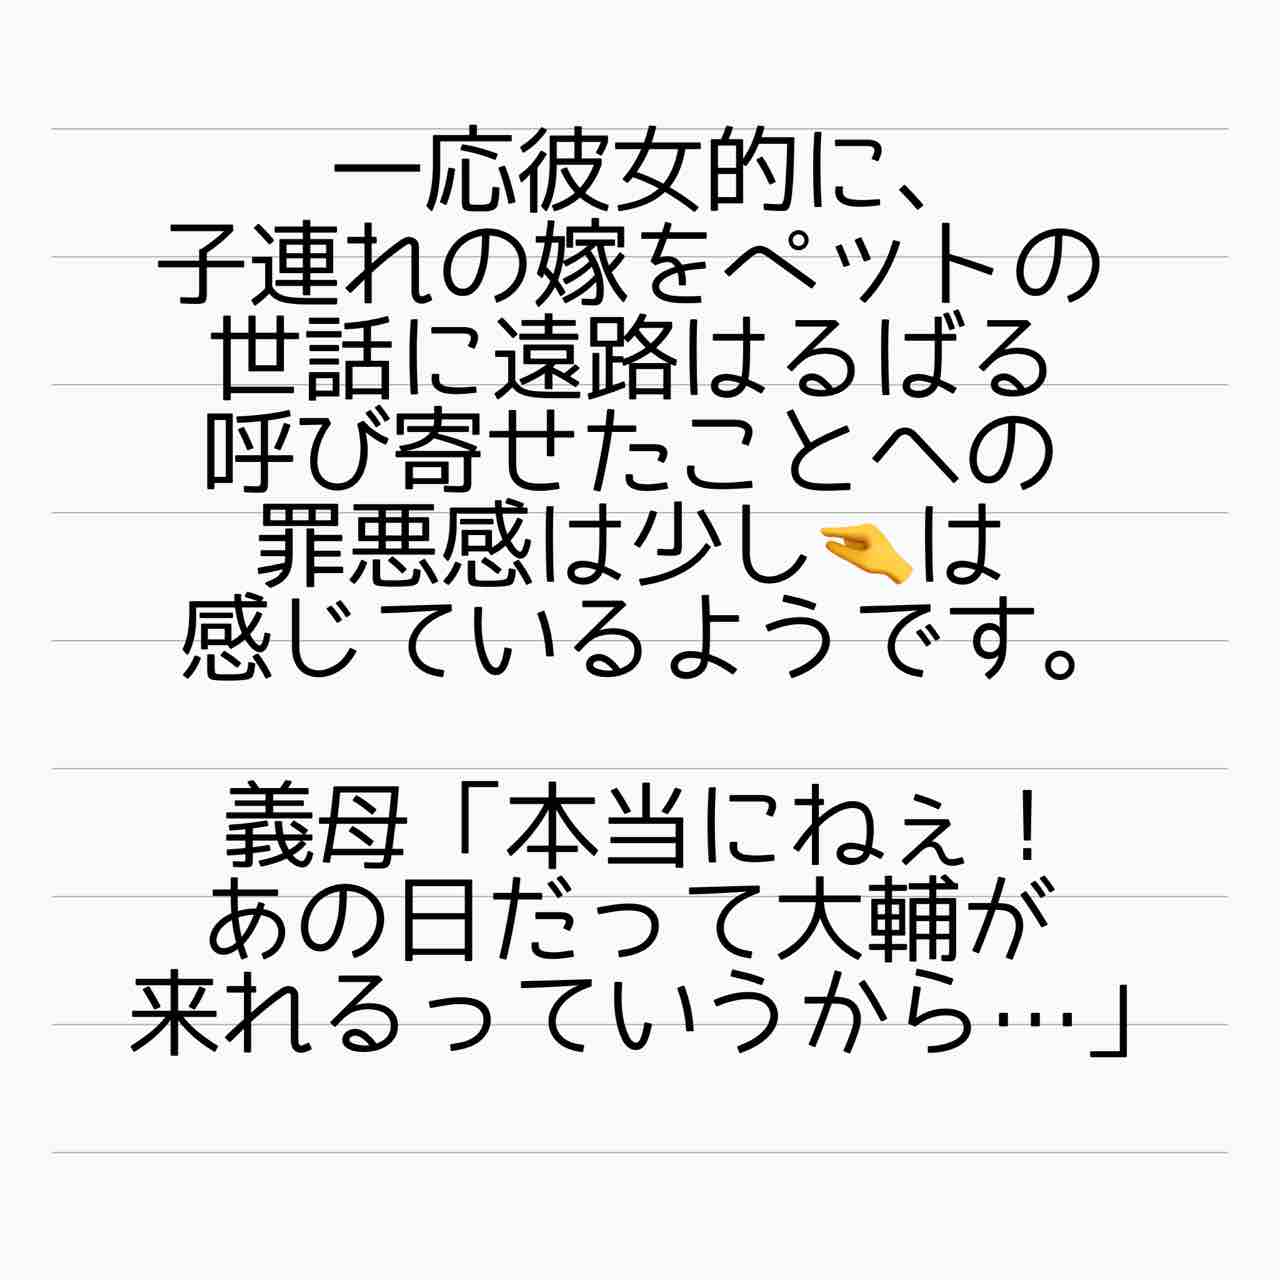 一応彼女的に、
子連れの嫁をペットの
世話に遠路はるばる
呼び寄せたことへの
罪悪感は少し🤏は
感じているようです。
義母「本当にねぇ！
あの日だって大輔が
来れるっていうから…」